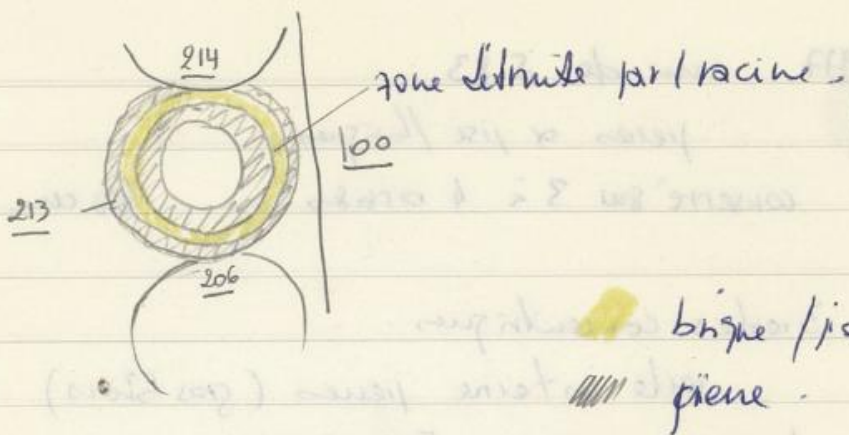 214
zone détruite par/racine.
100
213
206
brique /
pierre.